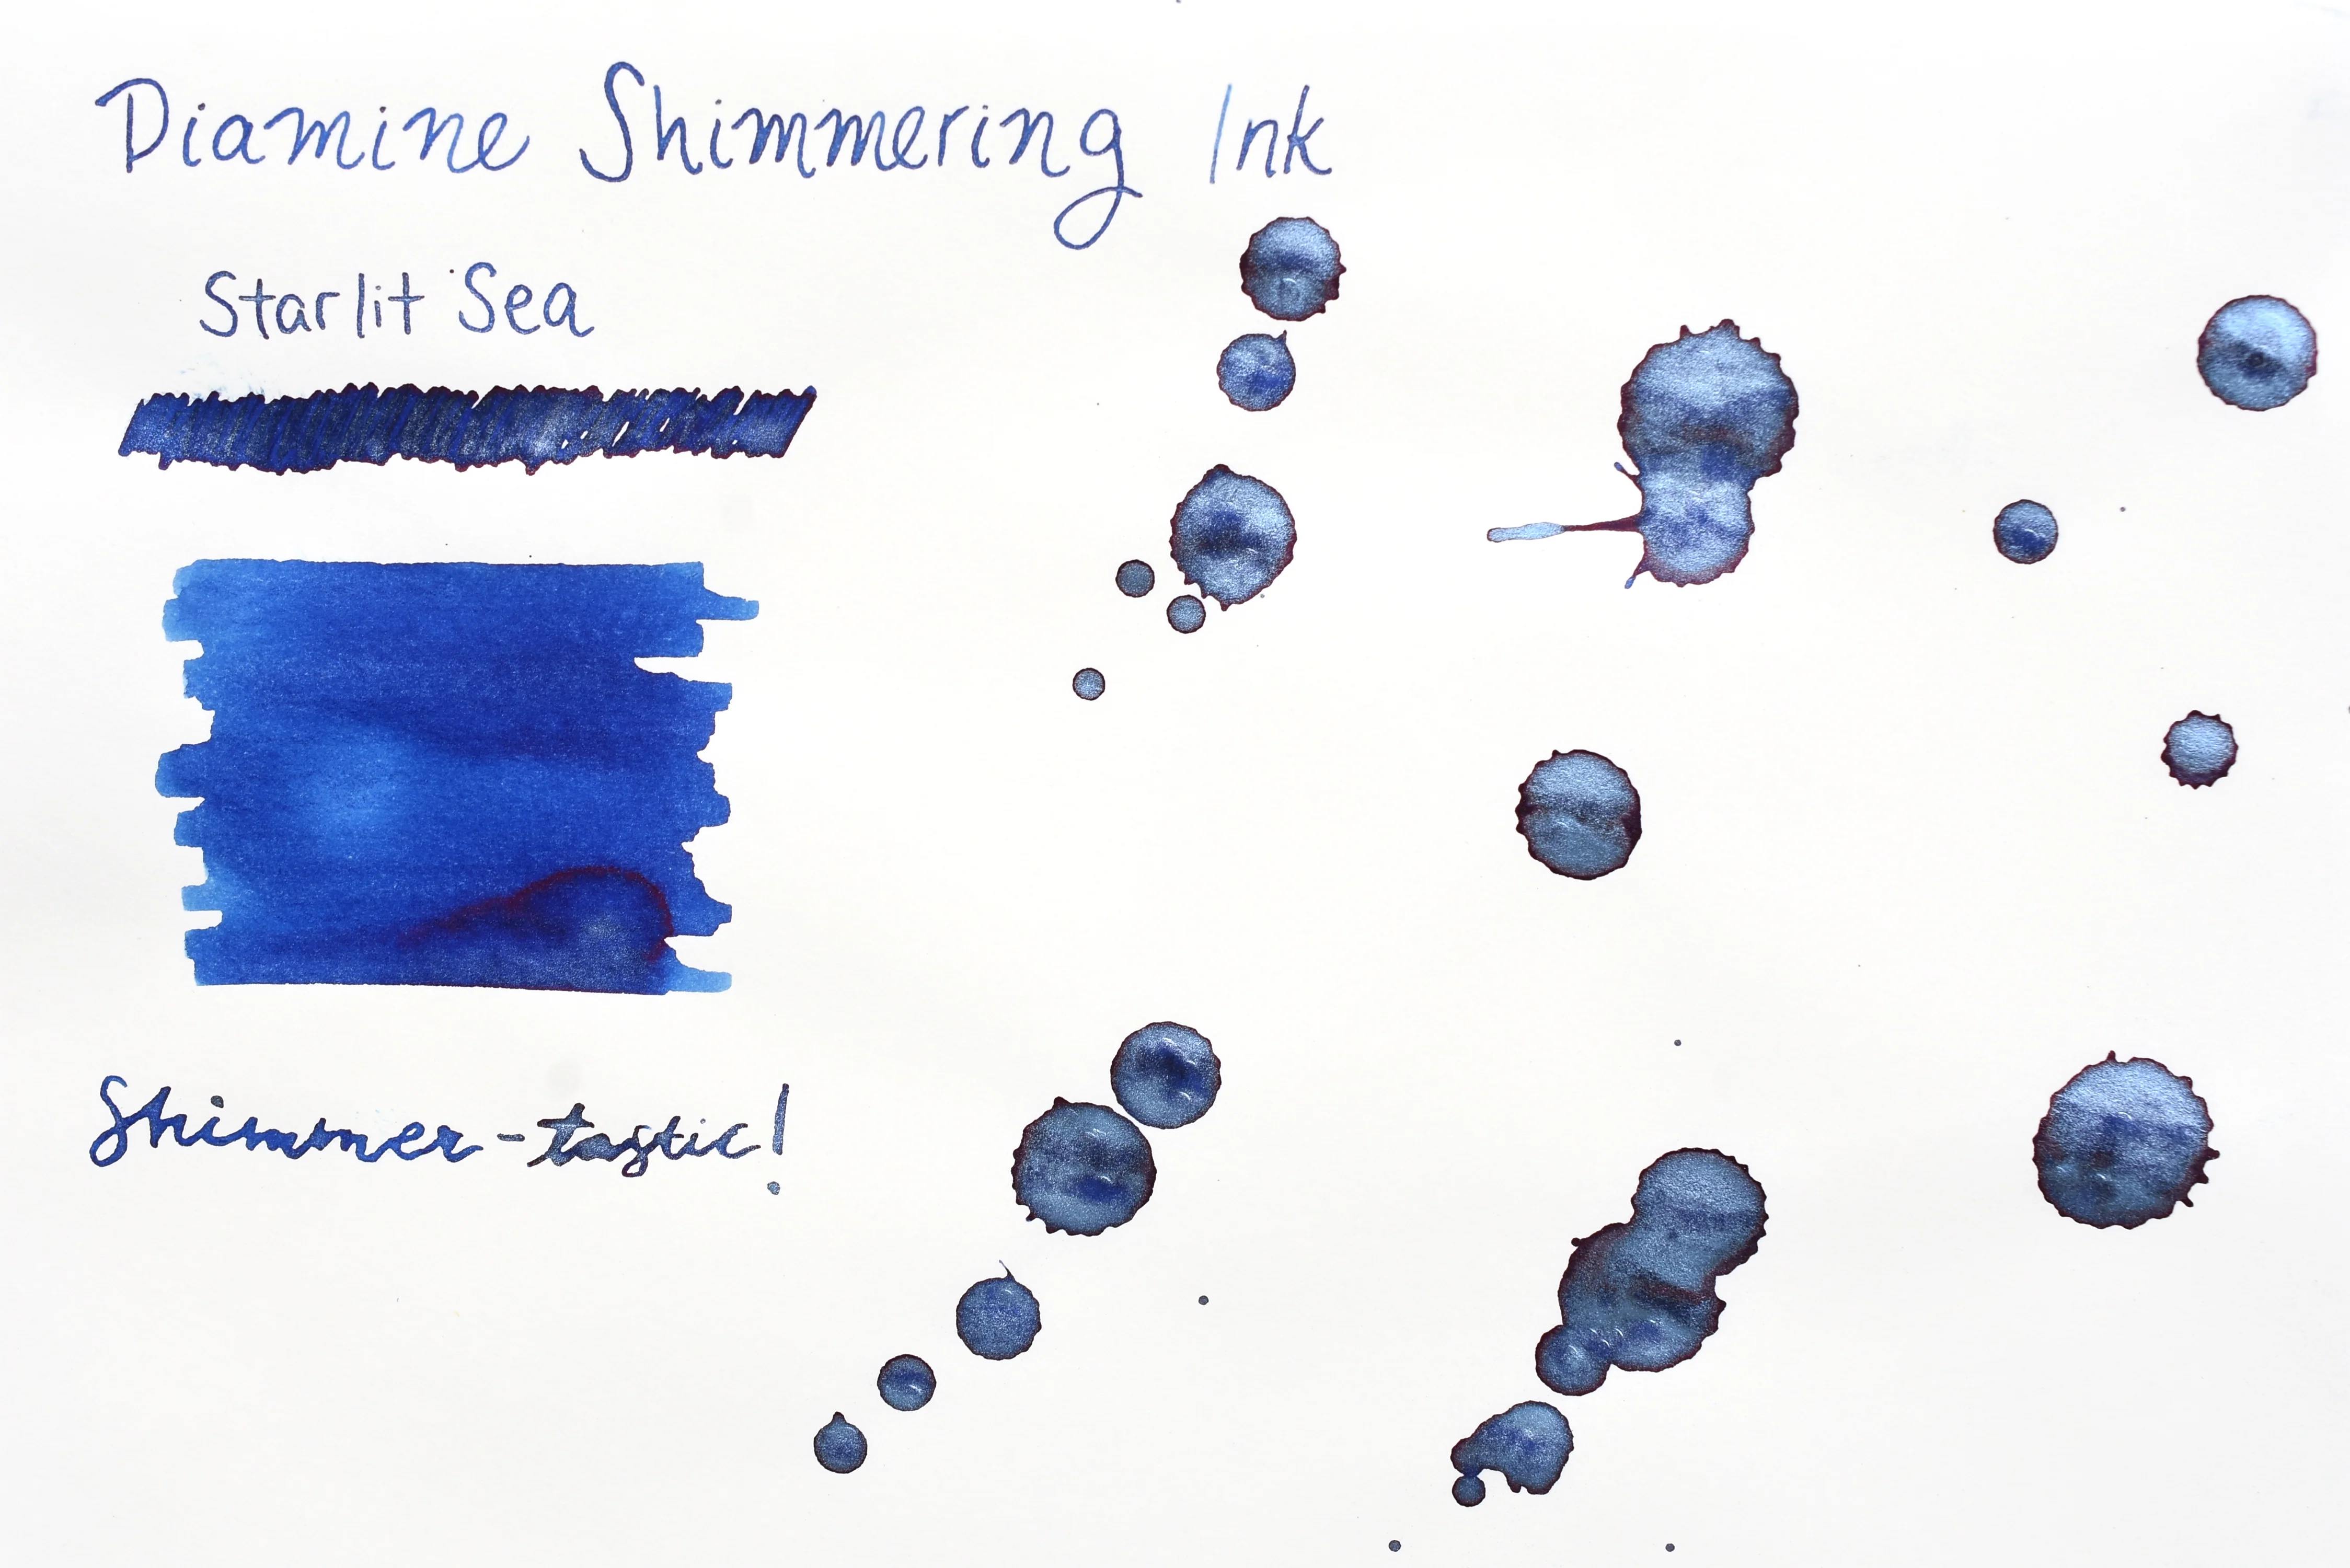 Diamine Shimmering Ink
Starlit Sea
Shimmer-tastic!